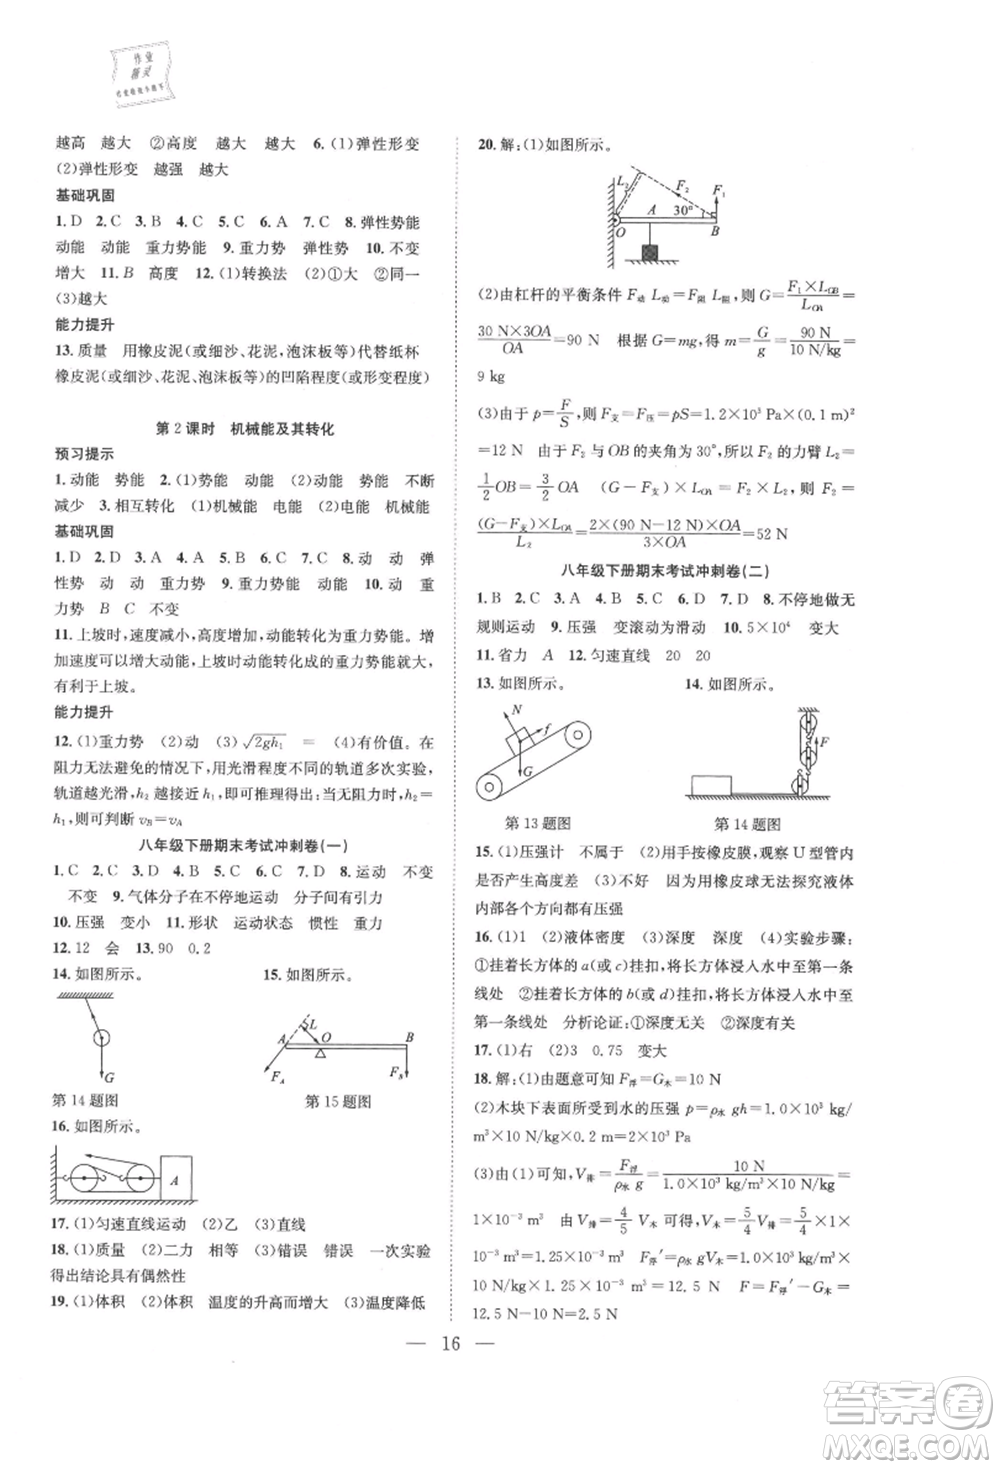 作业
精灵
越高 越大 ②高度 越大 越大 6.(1)弹性形变
(2)弹性形变 越强 越大
基础巩固
1.D 2.C 3.B 4.C 5.C 6.A 7.C 8.弹性势能
动能 动能 重力势能 9.重力势 弹性势 10.不变
增大 11.B 高度 12.(1)转换法 (2)①大 ②同一
(3)越大
能力提升
13.质量 用橡皮泥(或细沙、花泥,泡沫板等)代替纸杯
橡皮泥(或细沙、花泥、泡沫板等)的凹陷程度(或形变程度)
第2课时 机械能及其转化
预习提示
1.动能 势能 2.(1)势能 动能 (2)动能 势能 不断
减少 3.相互转化 (1)机械能 电能 (2)电能 机械能
基础巩固
1.D 2.D 3.A 4.C 5.C 6.D 7.A 8.动 动 弹
性势 动 9.动能 重力势能 不变 10.动 重
力势 B C 不变
11.上坡时,速度减小,高度增加,动能转化为重力势能。增
加速度可以增大动能,上坡时转化成的重力势能就大,
有利于上坡。
能力提升
12.(1)重力势 (2)动 (3)√2gh₁ = (4)有价值。在
阻力无法避免的情况下,用光滑程度不同的轨道多次实验,
轨道越光滑,h₂ 越接近 h₁,即可推理得出:当无阻力时,h₂=
h₁,则可判断 v_B=v_A
八年级下册期末考试冲刺卷(一)
1.C 2.C 3.D 4.B 5.C 6.C 7.D 8.运动 不变
不变 9.气体分子在不停地运动 分子间有引力
10.压强 变小 11.形状 运动状态 惯性 重力
12.12 会 13.90 0.2
14.如图所示。 15.如图所示。
G
A L O B F_A F_B
第14题图 第15题图
16.如图所示。
A
17.(1)匀速直线运动 (2)乙 (3)直线
18.(1)质量 (2)二力 相等 (3)错误 错误 一次实验
得出结论具有偶然性
19.(1)体积 (2)体积 温度的升高而增大 (3)温度降低
20.解:(1)如图所示。
L₂ F₂ F₁ A 30° O B
(2)由杠杆的平衡条件 F动 L动=F阻 L阻,则 G=F₁×L_OB/L_OA=
30 N×3OA/OA=90 N 根据 G=mg,得 m=G/g=90 N/10 N/kg=
9 kg
(3)由于 p=F/S,则 F支=F压=pS=1.2×10³ Pa×(0.1 m)²
=12 N 由于 F₂ 与 OB 的夹角为 30°,所以 F₂ 的力臂 L₂=
1/2 OB=3/2 OA (G-F支)×L_OA=F₂×L₂ F₂=
(G-F支)×L_OA/L₂=2×(90 N-12 N)×OA/3×OA=52 N
八年级下册期末考试冲刺卷(二)
1.B 2.C 3.B 4.A 5.C 6.D 7.D 8.不停地做无
规则运动 9.压强 变滚动为滑动 10.5×10⁴ 变大
11.省力 A 12.匀速直线 20 20
13.如图所示。 14.如图所示。
N f G F
第13题图 第14题图
15.(1)压强计 不属于 (2)用手按橡皮膜,观察 U 型管内
是否产生高度差 (3)不好 因为用橡皮球无法探究液体
内部各个方向都有压强
16.(1)1 (2)液体密度 (3)深度 深度 (4)实验步骤:
①挂着长方体的 a(或 c)挂扣,将长方体浸入水中至第一条
线处 ②挂着长方体的 b(或 d)挂扣,将长方体浸入水中至
第一条线处 分析论证:①深度无关 ②深度有关
17.(1)右 (2)3 0.75 变大
18.解:(1)由题意可知 F浮=G木=10 N
(2)木块下表面所受到水的压强 p=ρ水 gh=1.0×10³ kg/
m³×10 N/kg×0.2 m=2×10³ Pa
(3)由(1)可知,V排=F浮/ρ水 g=10 N/1.0×10³ kg/m³×10 N/kg=
1×10⁻³ m³ 由 V排=4/5 V木 可得,V木=5/4 V排=5/4×1×
10⁻³ m³=1.25×10⁻³ m³ F浮′=ρ水 gV木=1.0×10³ kg/m³×
10 N/kg×1.25×10⁻³ m³=12.5 N F=F浮′-G木=
12.5 N-10 N=2.5 N
— 16 —
答案圈
MXQE.COM